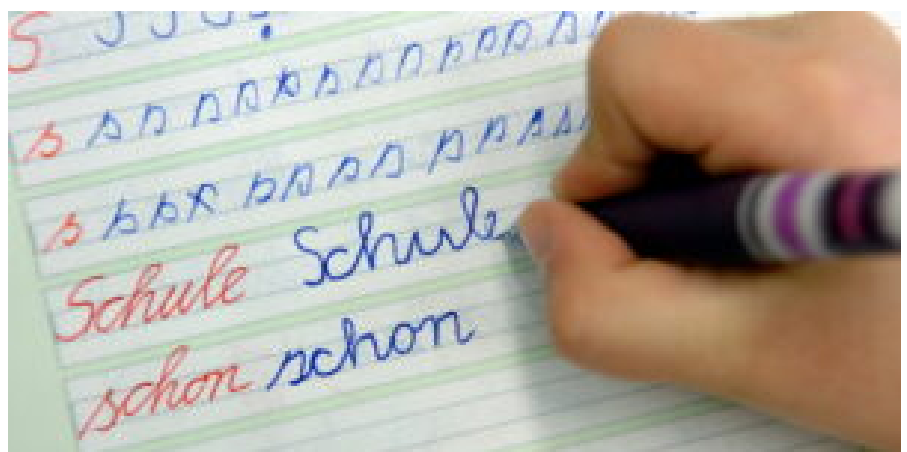 S S S S S
s s s s s s s s s s s s s s
s s s s s s s s s s s s s
Schule Schule
schon schon